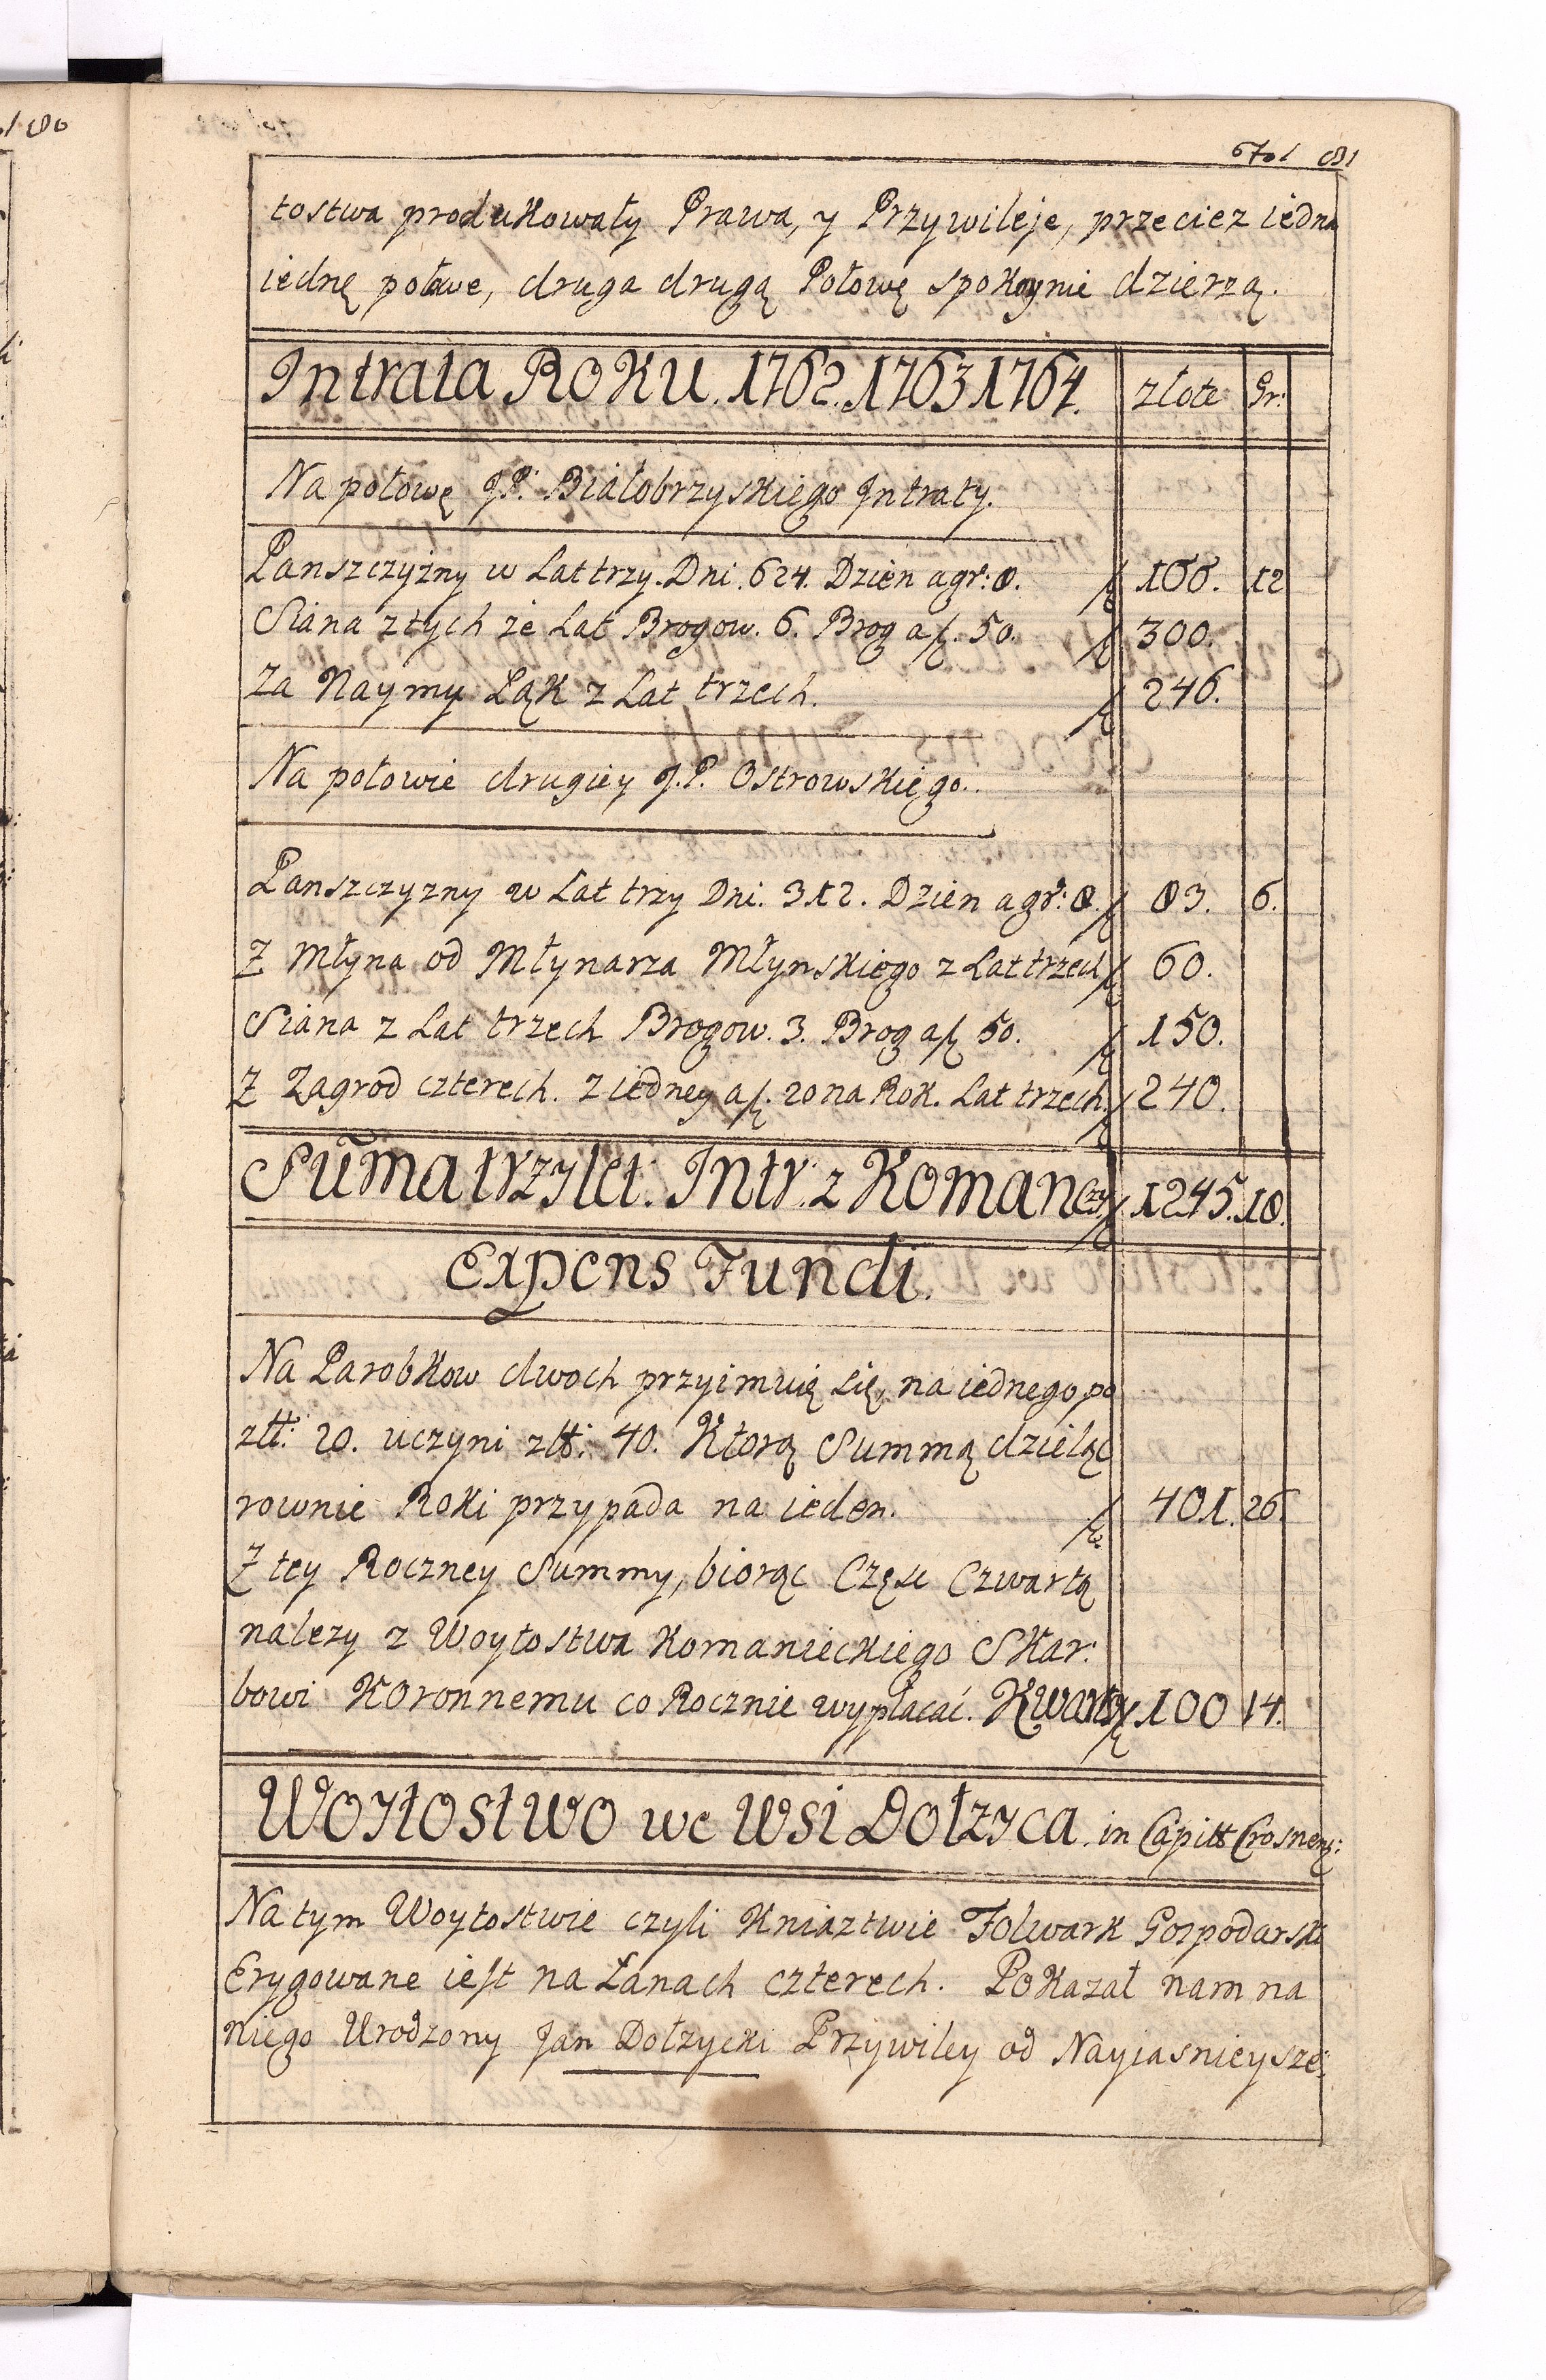 Fol 81
tostwa produkowały Prawa, y Przywileje, przeciez iedna
iednę połowe, druga drugą Połowę spokoynie dzierzą.
Intrata Roku. 1762. 1763 1764. złote Gr:
Na połowę J.P. Białobrzyskiego Intraty.
Panszczyzny w Lat trzy. Dni. 624. Dzien a gr: 8. f 166. 12
Siana z tych że Lat Brogow. 6. Brog a f. 50. f 300.
Za Naymy Ląk z Lat trzech. f 246.
Na połowie drugiey J.P. Ostrowskiego.
Panszczyzny w Lat trzy Dni. 312. Dzien a gr: 8. f 83. 6.
Z Młyna od Młynarza Młynskiego z Lat trzech f 60.
Siana z Lat trzech Brogow. 3. Brog a f 50. f 150.
Z Zagrod czterech. z iedney a f. 20 na Rok. Lat trzech. f 240.
Sum̄a trzylet: Intr: z Komanczy f 1245. 18.
Expens Fundi.
Na Parobkow dwoch przyimuię się, na iednego po
złł: 20. uczyni złł: 40. Ktorą Summą dzieląc
rownie Roki przypada na ieden. f 401. 26.
Z tey Roczney Summy, biorąc Częsc Czwartą
nalezy z Woytostwa Komanieckiego Skar:
bowi Koronnemu co Rocznie wypłacać. Kwarty f 100 14.
Woytostwo we Wsi Dołzyca. in Capitt Crosnens:
Na tym Woytostwie czyli Kniaztwie Folwark Gospodarski
Erygowane iest na Łanach czterech. Pokazał nam na
niego Urodzony Jan Dołzycki Przywiley od Nayiasnieysze: